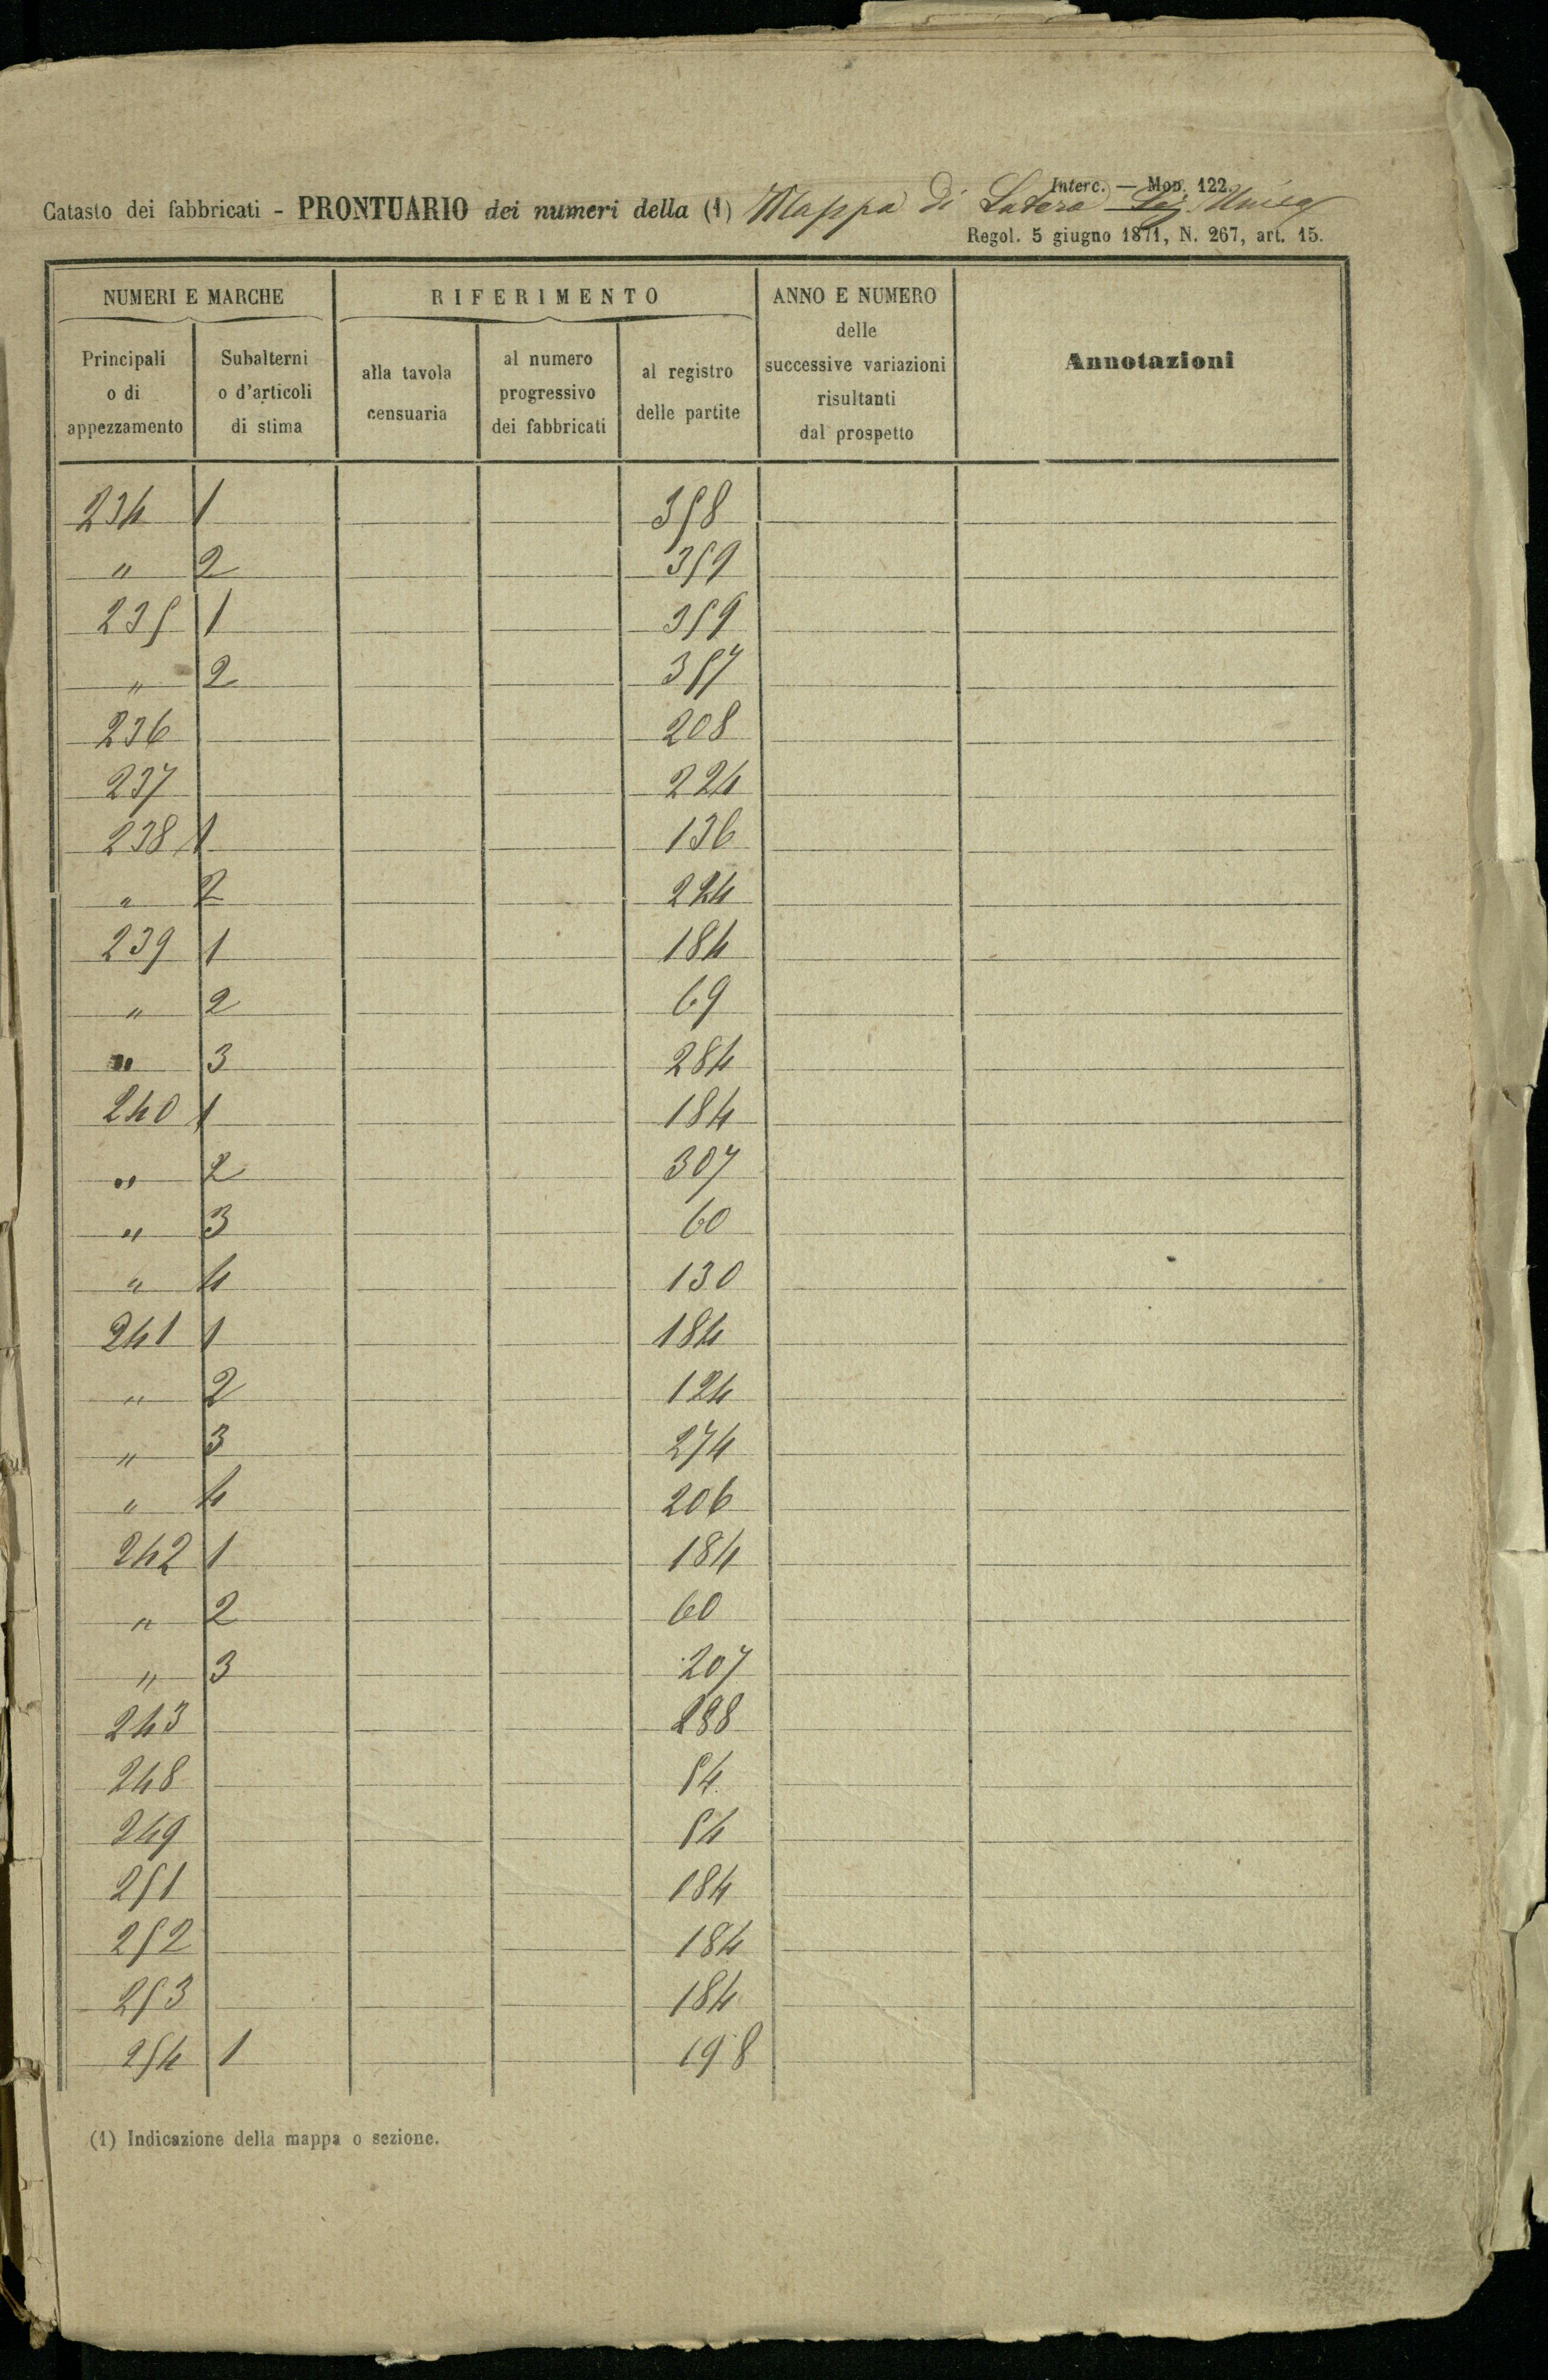 Interc. — Mod. 122.
Catasto dei fabbricati - PRONTUARIO dei numeri della (1) Mappa di Latera Sez. Unica
Regol. 5 giugno 1871, N. 267, art. 15.
NUMERI E MARCHE
RIFERIMENTO
ANNO E NUMERO
delle
successive variazioni
risultanti
dal prospetto
Annotazioni
Principali
o di
appezzamento
Subalterni
o d'articoli
di stima
alla tavola
censuaria
al numero
progressivo
dei fabbricati
al registro
delle partite
234 1 358
" 2 359
235 1 359
" 2 357
236 208
237 224
238 1 136
" 2 224
239 1 184
" 2 69
" 3 284
240 1 184
" 2 307
" 3 60
" 4 130
241 1 184
" 2 124
" 3 274
" 4 206
242 1 184
" 2 60
" 3 207
243 288
248 54
249 54
251 184
252 184
253 184
254 1 198
(1) Indicazione della mappa o sezione.